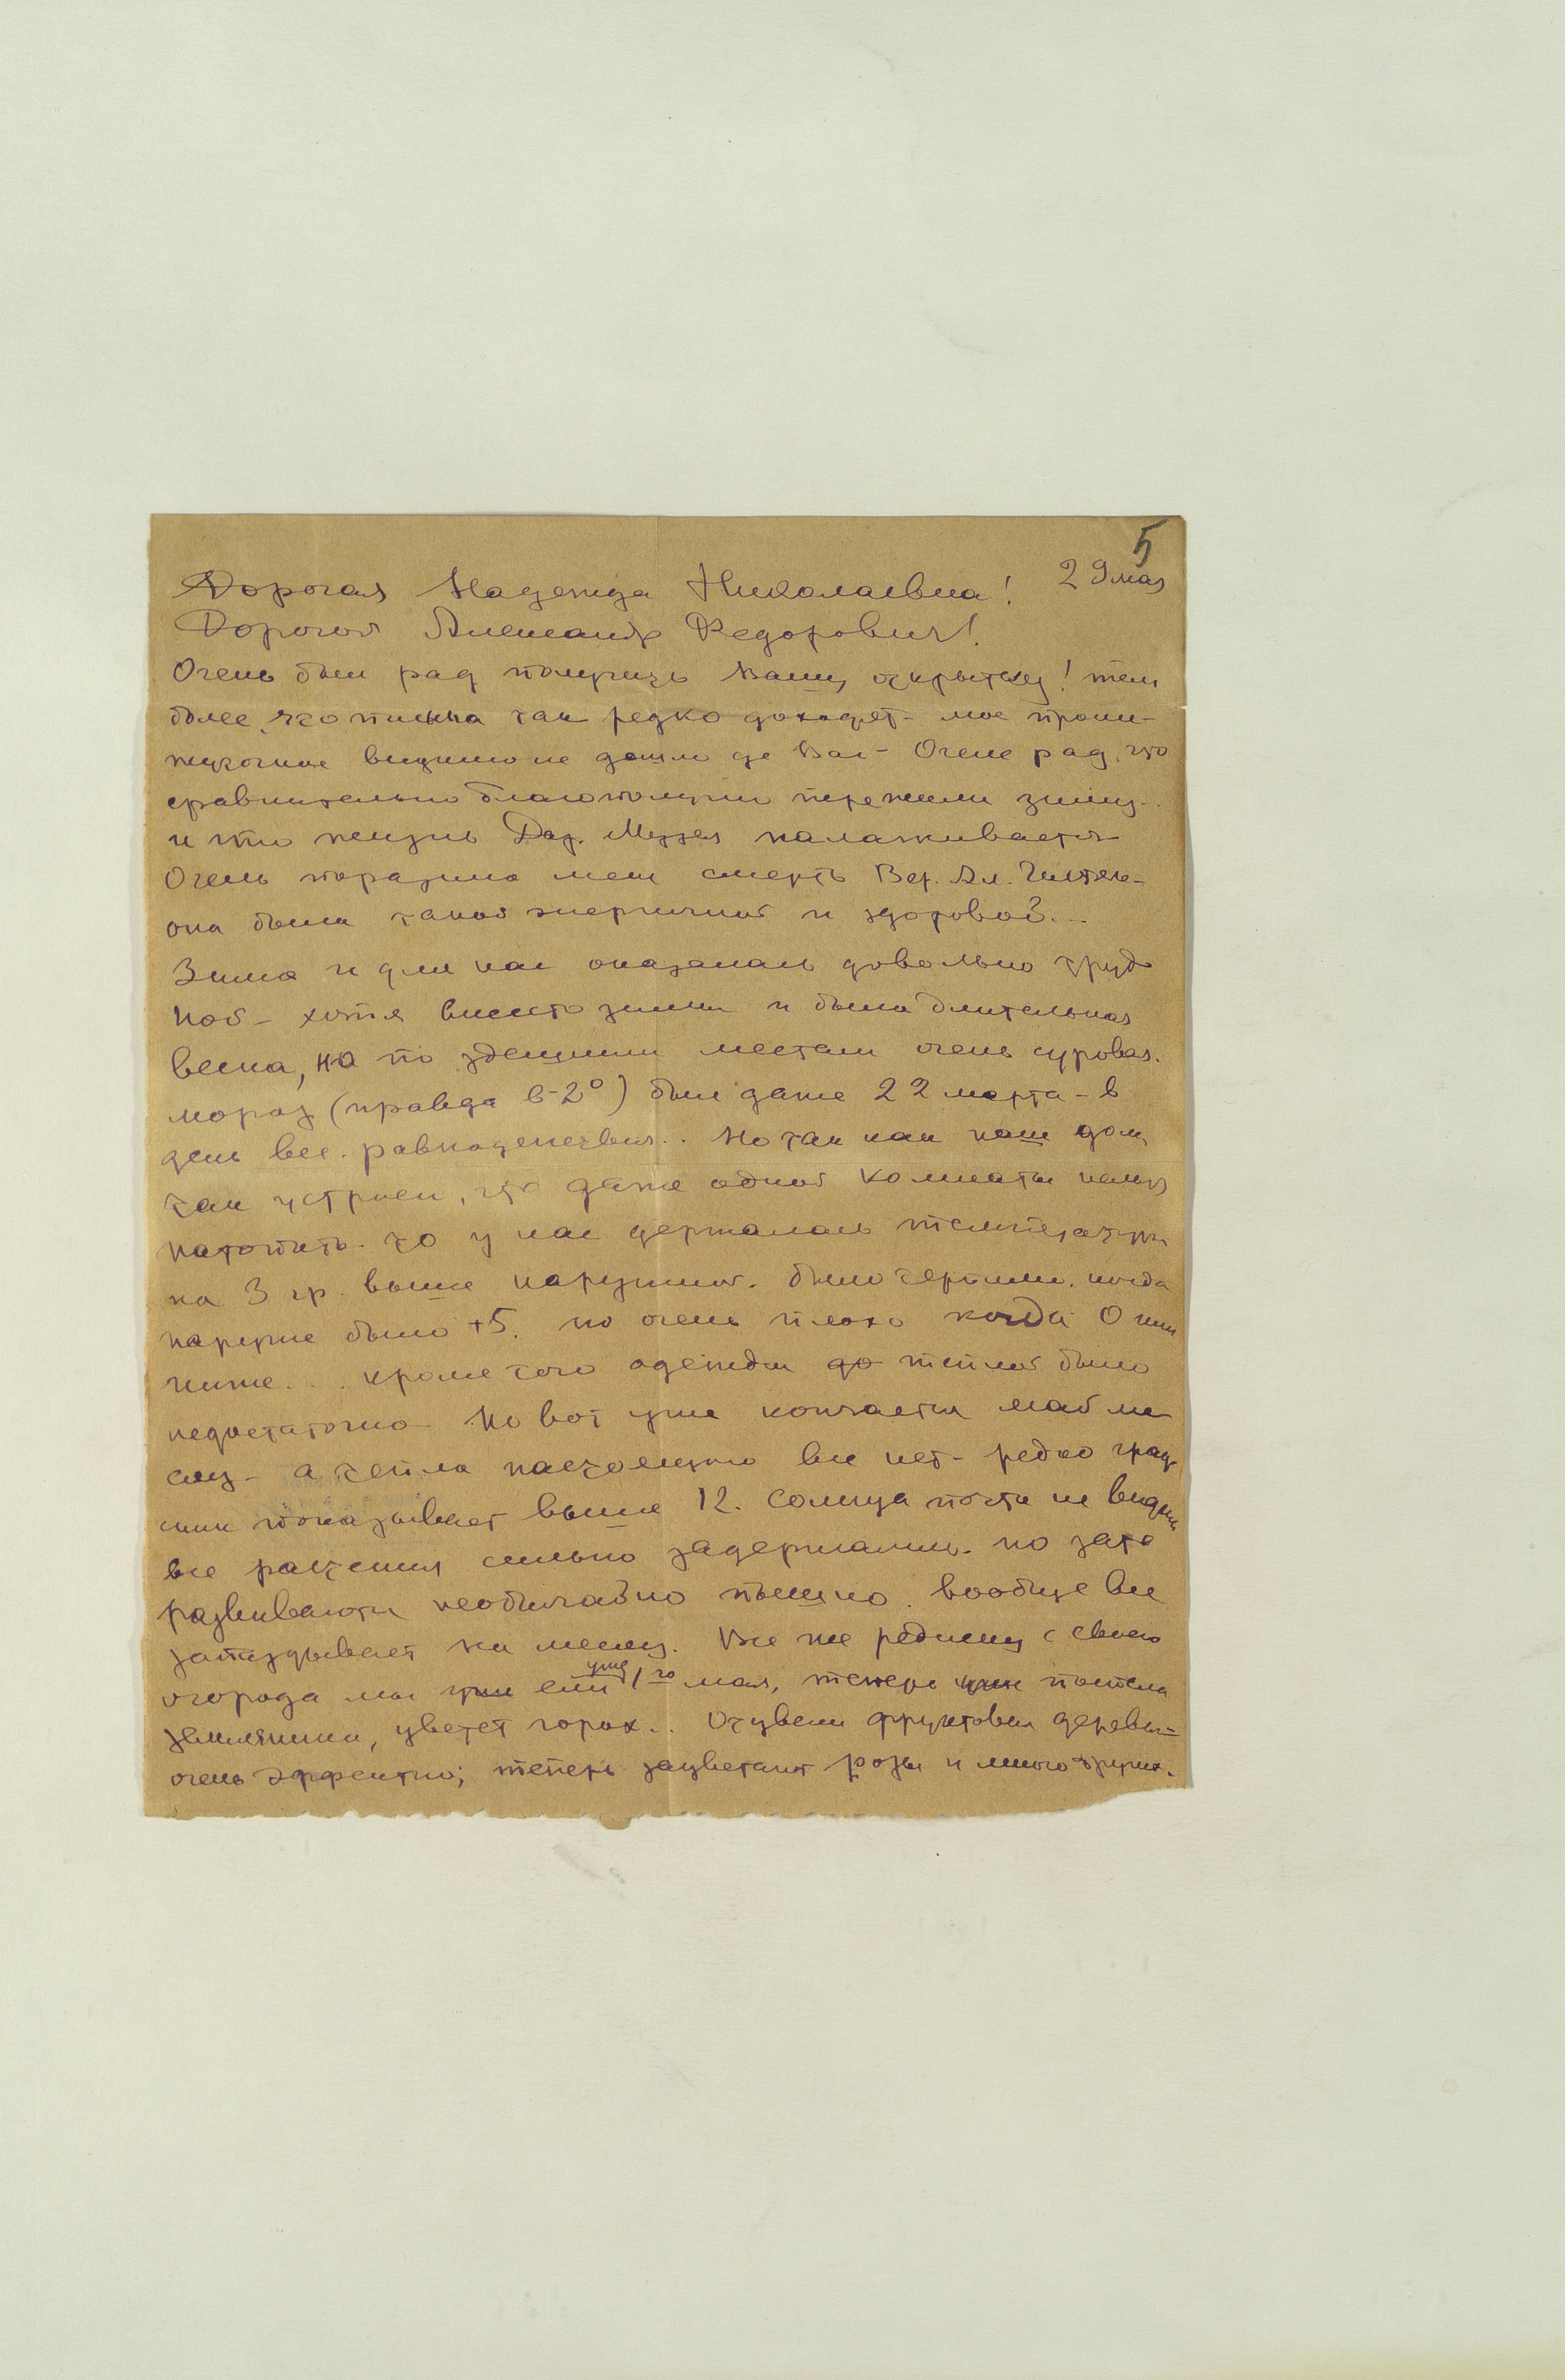 5
29 мая
Дорогая Надежда Николаевна!
Дорогой Александр Федорович!
Очень был рад получить Вашу открытку! тем
более, что письма так редко доходят – мое проме-
жуточное видимо не дошло до Вас – Очень рад, что
сравнительно благополучно пережили зиму –
и что жизнь Дар. Музея налаживается
Очень поразила меня смерть Вер. Ал.
она была такой энергичной и здоровой...
Зима и для нас оказалась довольно труд
ной – хотя вместо зимы и была длительная
весна, но по здешним местам очень суровая.
мороз (правда в -2°) был даже 22 марта – в
день вес. равноденствия.. Но так как наш дом
так устроен, что даже одной комнаты нельзя
натопить – то у нас держалась температура
на 3 гр. выше наружной. было терпимо, когда
наружи было +5. но очень плохо когда 0 или
ниже... кроме того одежды до теплой было
недостаточно – Но вот уже кончается май ме
сяц – а тепла настоящего все нет – редко граду
сник показывает выше 12. Солнца почти не видим
все растения сильно задержались. но зато
развиваются необычайно пышно. вообще все
запаздывает на месяц. Все же редиску с своего
огорода мы уже ели уже 1го мая, теперь уже поспела
земляника, цветет горох.. Отцвели фруктовые деревья –
очень эффектно; теперь зацветают розы и много других.